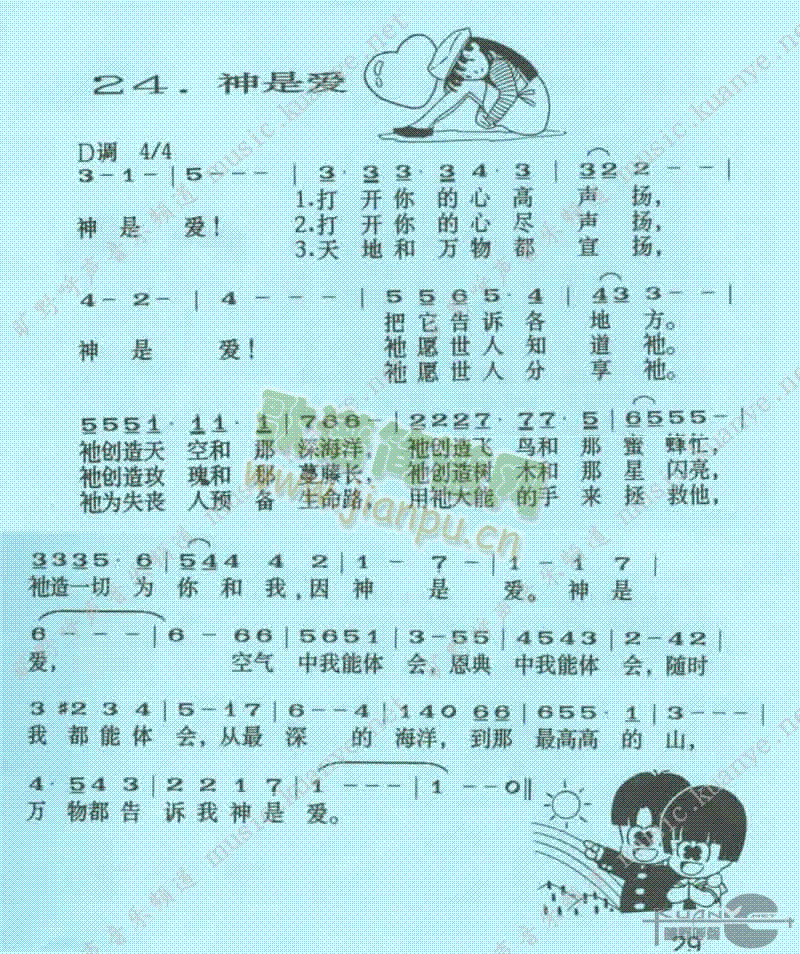 24. 神是爱
D调 4/4
3-1-|5---|3·33·34·3|322--|
神 是 爱！ 1.打 开 你 的 心 高 声 扬，
2.打 开 你 的 心 尽 声 扬，
3.天 地 和 万 物 都 宣 扬，
4-2-|4---|5565·4|433--|
神 是 爱！ 把 它 告 诉 各 地 方。
祂 愿 世 人 知 道 祂。
祂 愿 世 人 分 享 祂。
5551·11·1|766--|2227·77·5|6555-|
祂创造天 空和 那 深海洋， 祂创造飞 鸟和 那 蜜 蜂忙，
祂创造玫 瑰和 那 蔓藤长， 祂创造树 木和 那 星 闪亮，
祂为失丧 人预 备 生命路， 用祂大能 的手 来 拯 救他，
3335·6|544 4 2|1-7-|1-17|
祂造一切 为 你 和 我，因 神 是 爱。神 是
6---|6-66|5651|3-55|4543|2-42|
爱， 空气 中我能体 会，恩典 中我能体 会，随时
3#234|5-17|6--4|14066|655·1|3---|
我 都 能 体 会，从最 深 的 海洋，到那 最高高 的 山，
4·543|2217|1---|1--0‖
万 物都 告 诉我神是 爱。
歌谱简谱网
www.jianpu.cn
旷野呼声音乐频道 music.kuanye.net
KUANYE.NET
旷野呼声
29